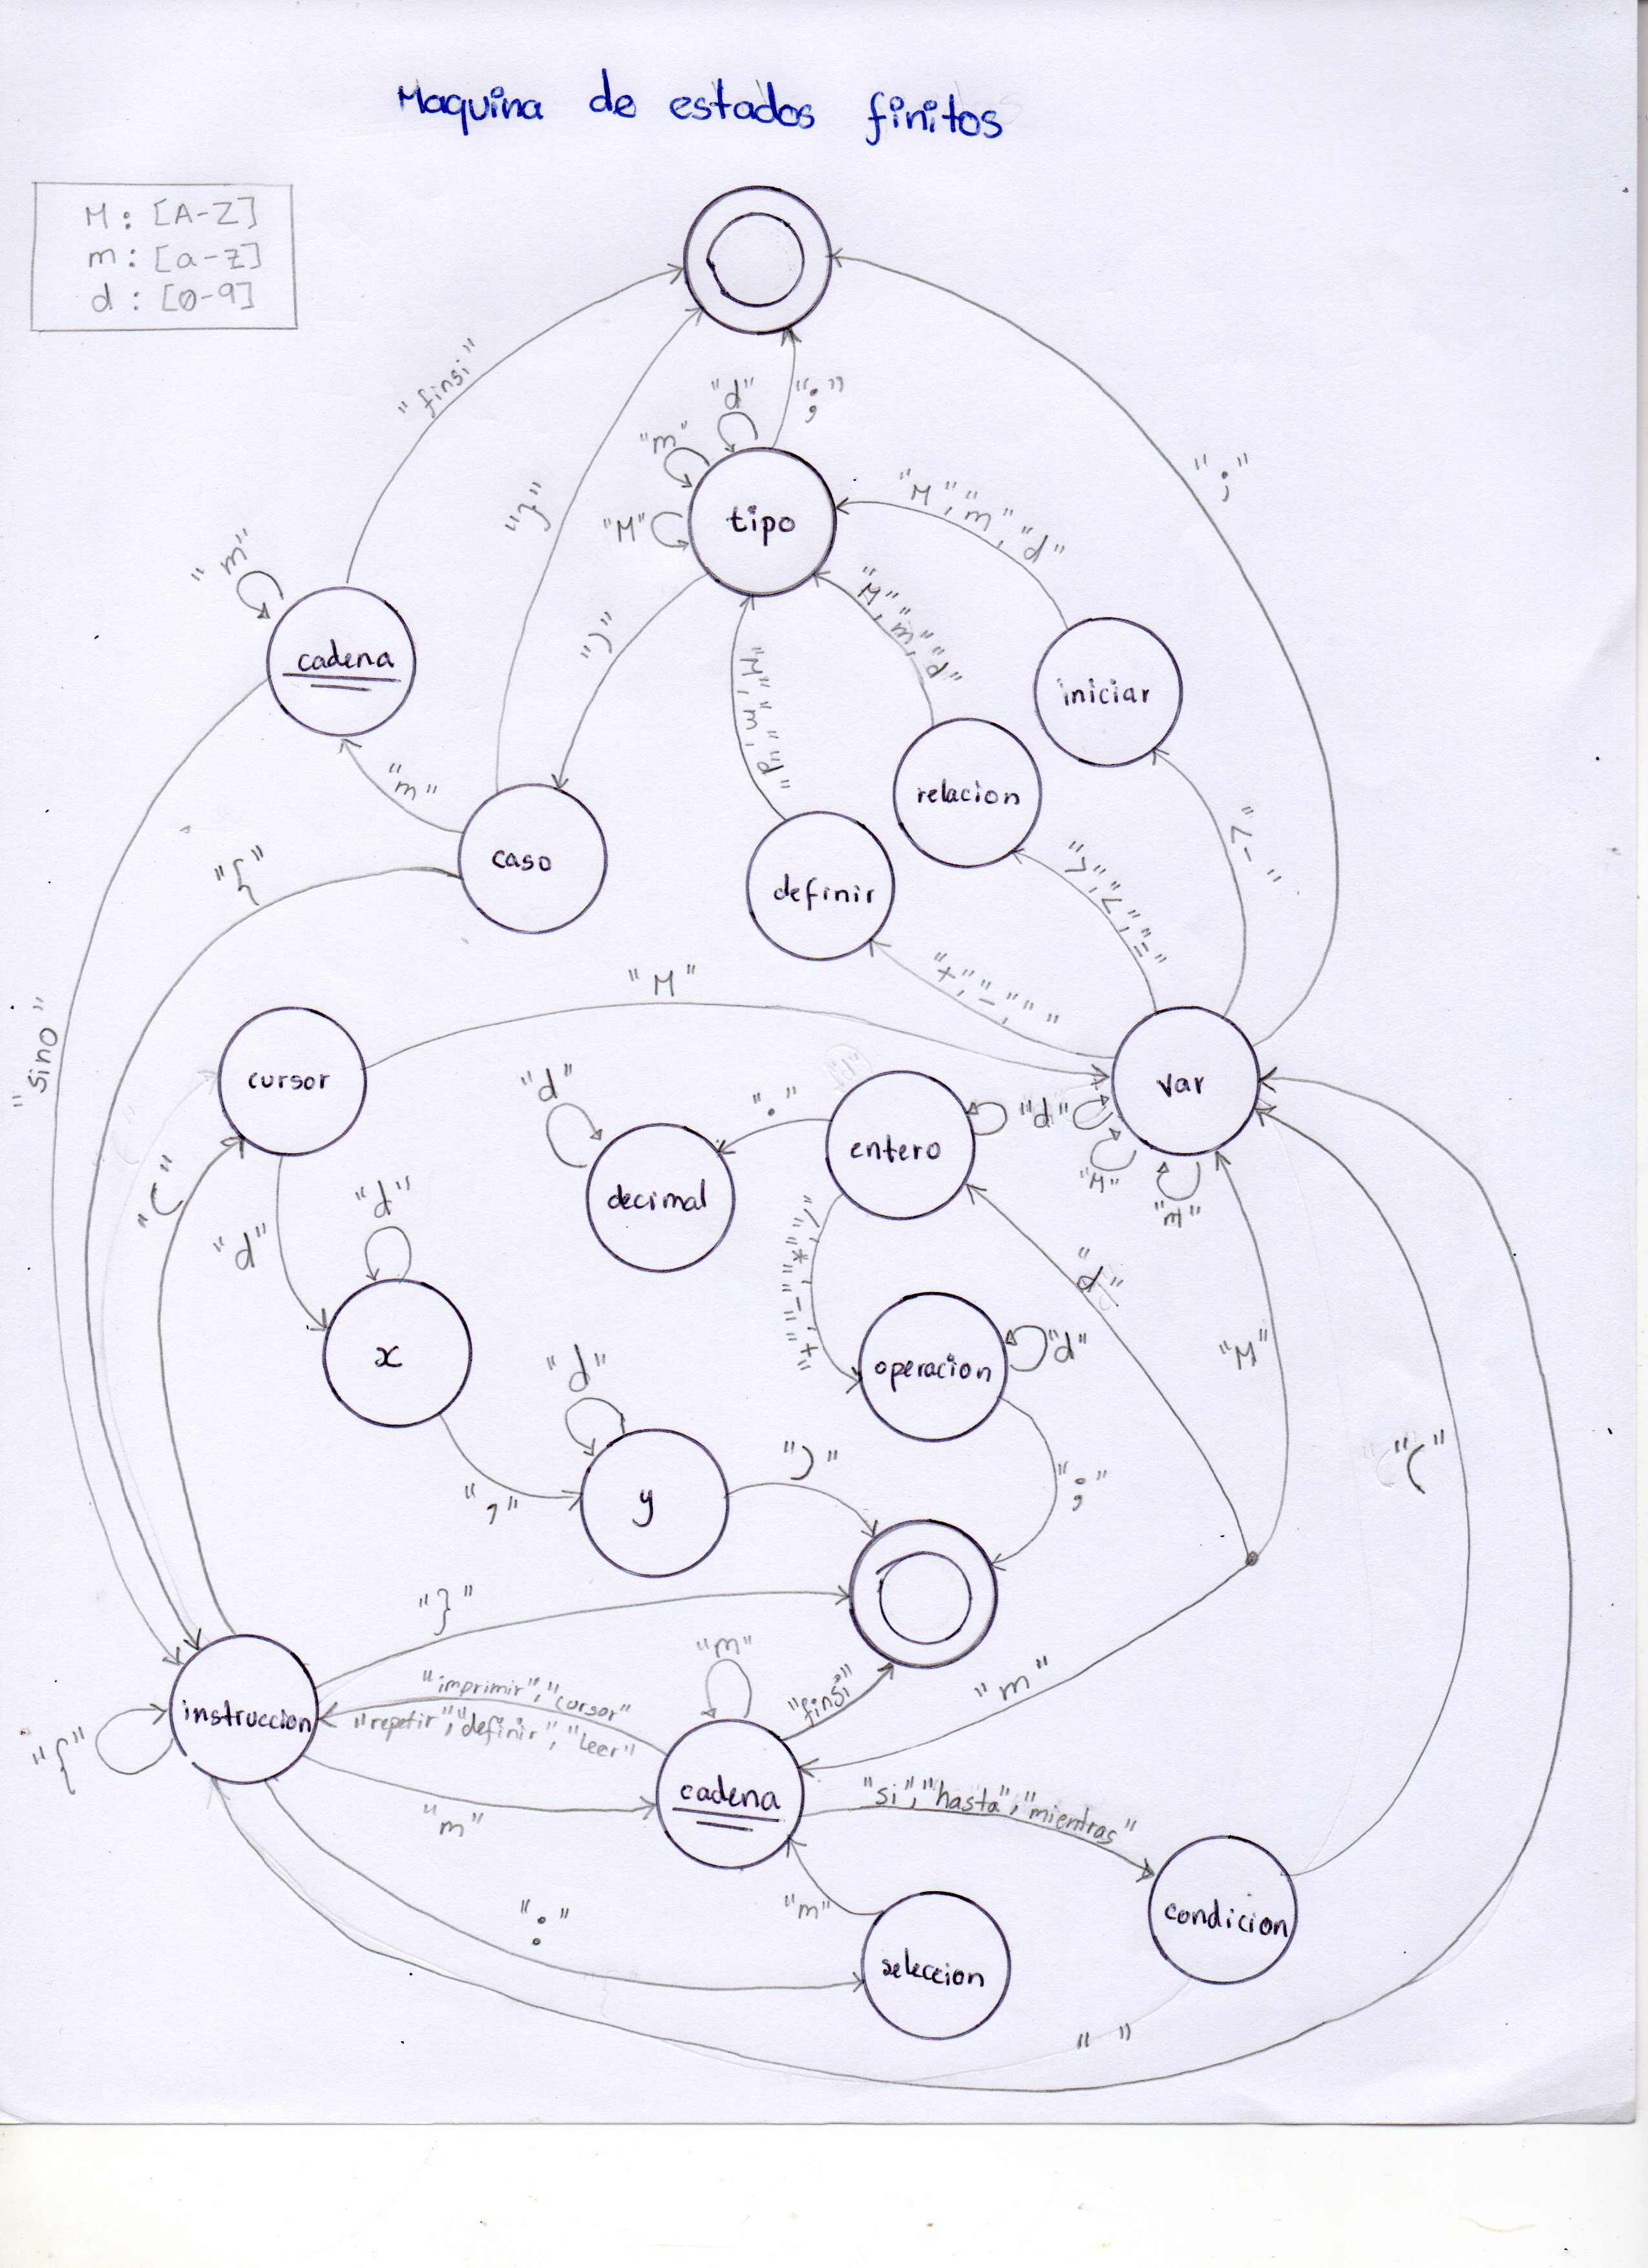 Maquina de estados finitos
M: [A-Z]
m: [a-z]
d: [0-9]
"finsi"
"}"
"d"
";"
"m"
"M"
tipo
"M","m","d"
";"
"m"
cadena
")"
"M","m","d"
"M","m","d"
iniciar
relacion
"m"
caso
definir
"{"
">","<","="
"<-"
"+","-"," "
"sino"
"M"
cursor
"d"
"."
entero
"d"
var
"M"
"m"
decimal
"("
"d"
"d"
"/","*","-","+"
"d"
x
operacion
"d"
"M"
"d"
","
y
")"
";"
"("
"}"
"m"
"finsi"
"m"
"imprimir","cursor"
"repetir","definir","leer"
instruccion
"{"
"m"
cadena
"si","hasta","mientras"
"m"
condicion
":"
seleccion
" "